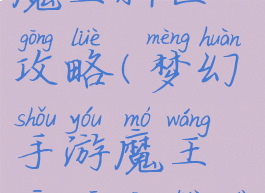 gōng lüè mèng huàn
攻略(梦幻
shǒu yóu mó wáng
手游魔王